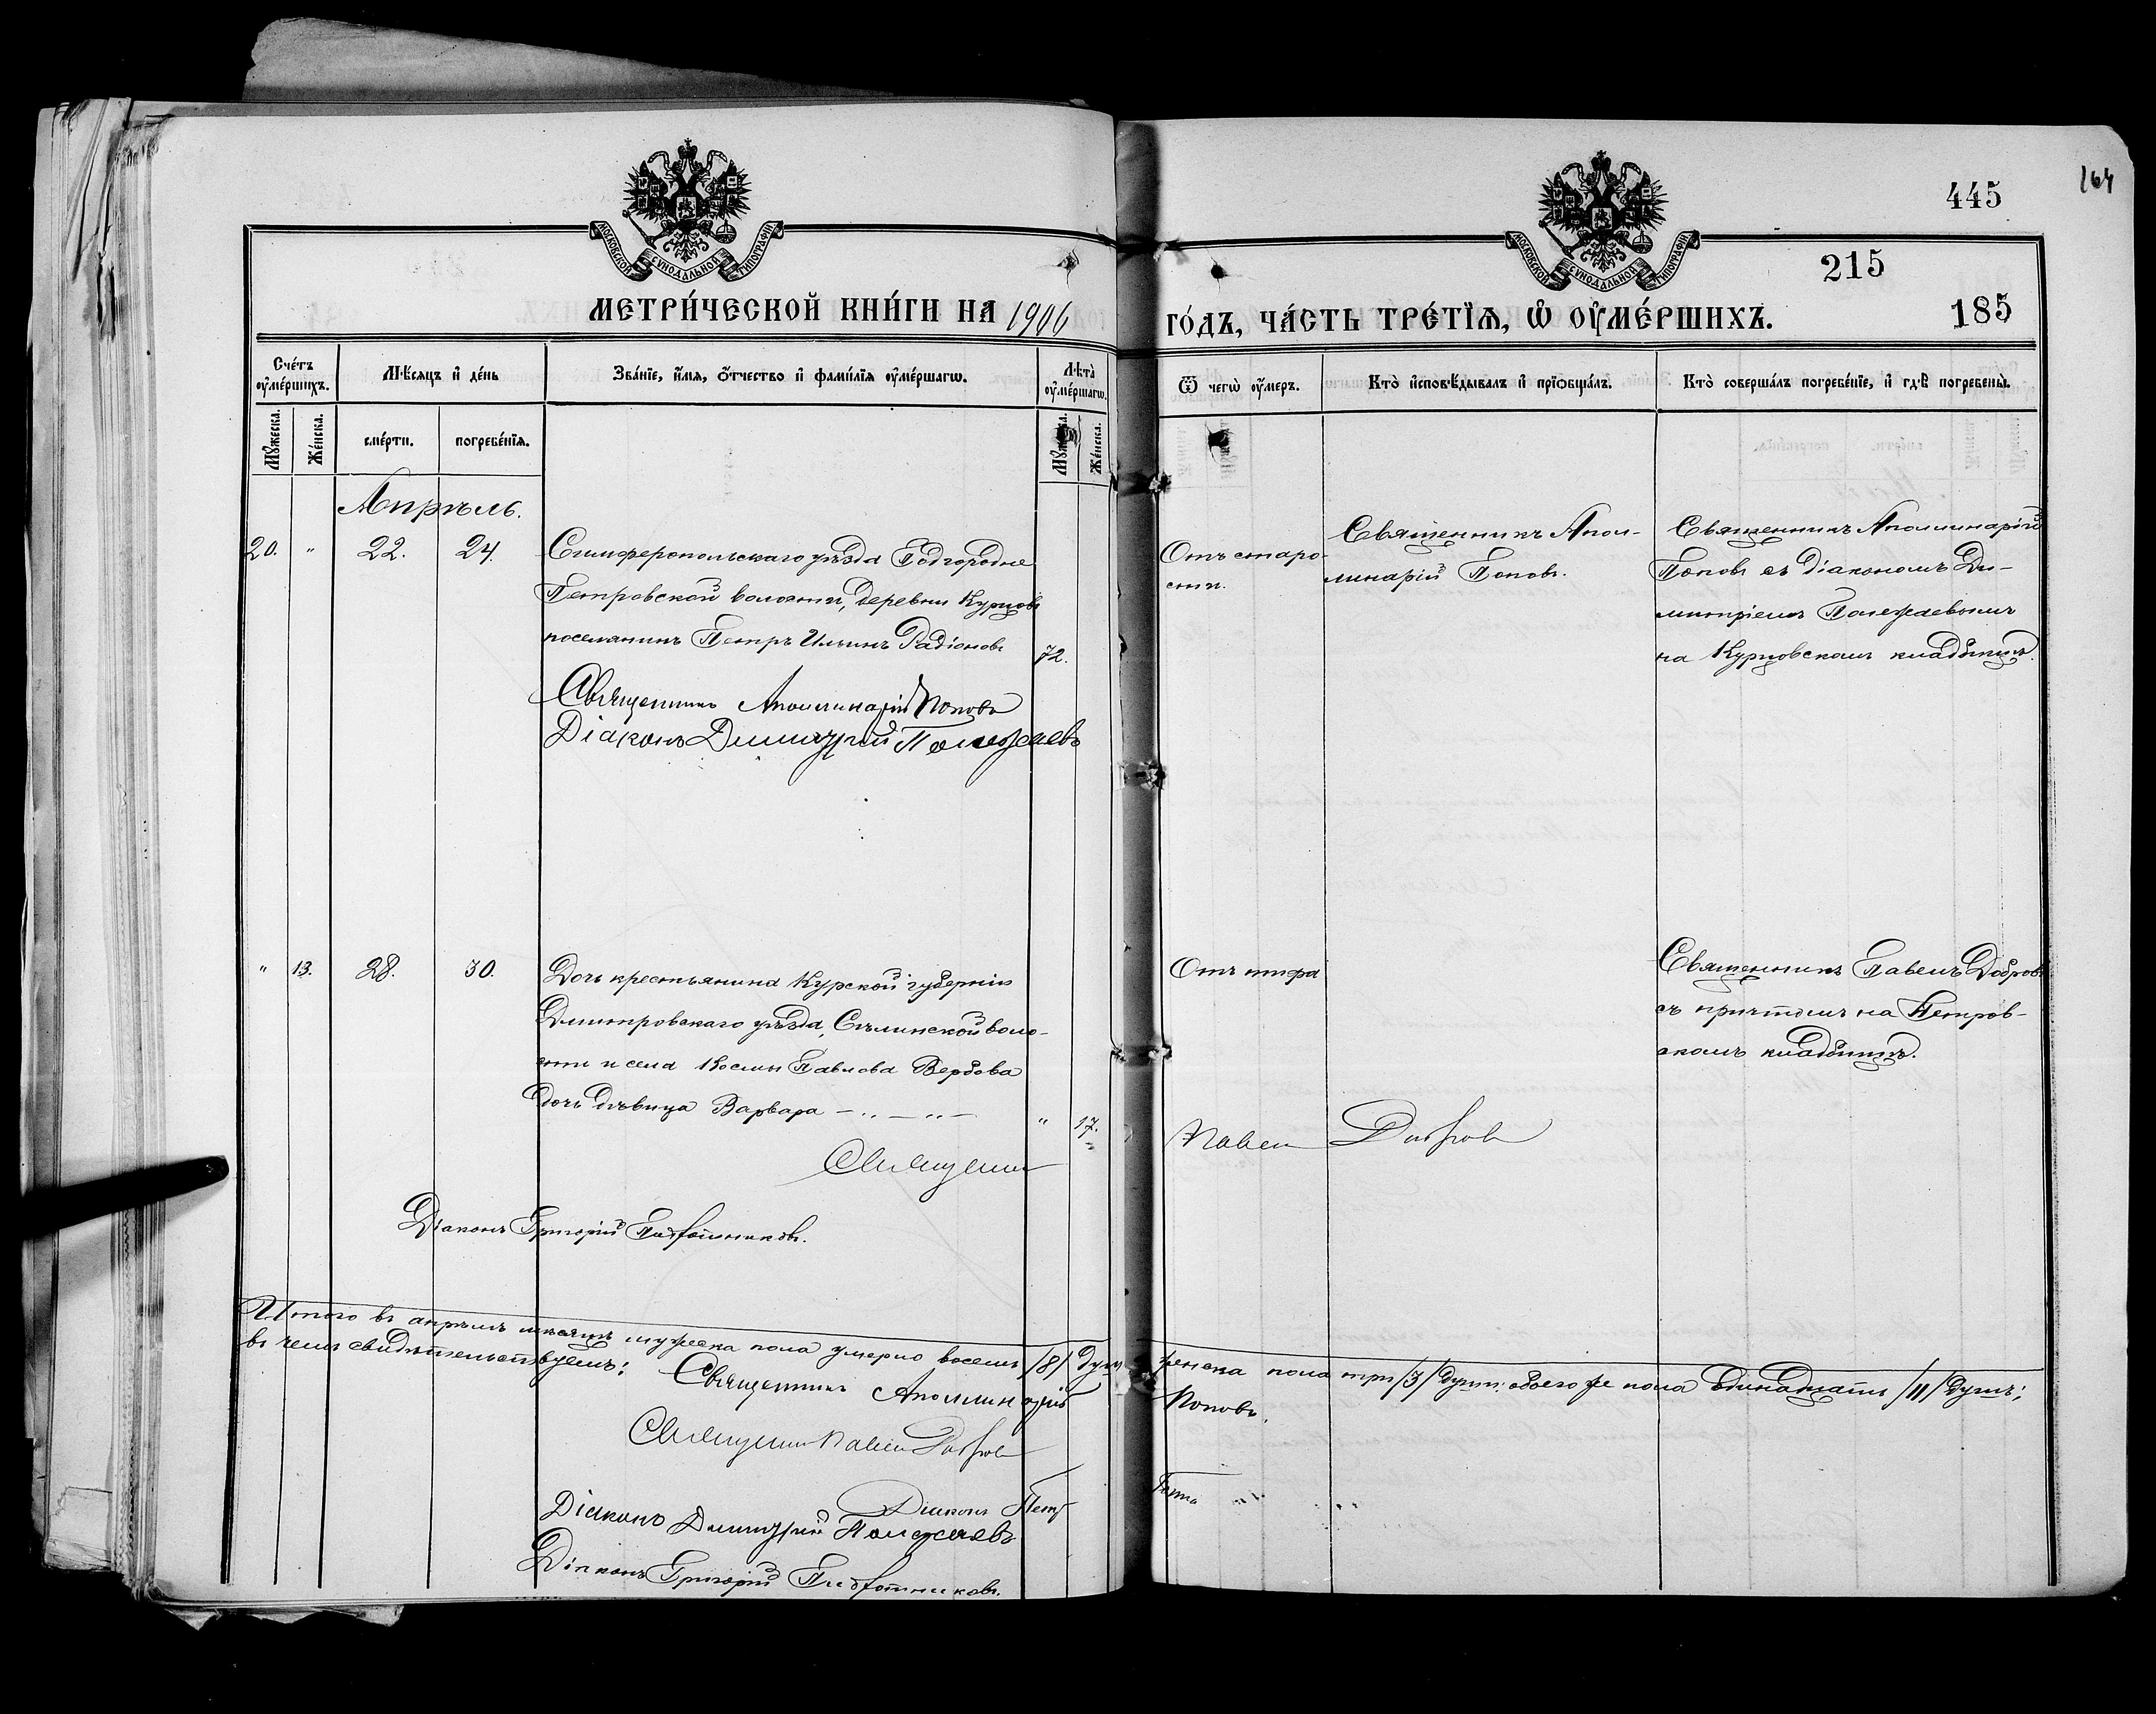 164
445
МОСКОВСКОЙ СѴНОДАЛЬНОЙ ТИПОГРАФІИ
МОСКОВСКОЙ СѴНОДАЛЬНОЙ ТИПОГРАФІИ
215
185
МЕТРИ́ЧЕСКОЙ КНИ́ГИ НА 1906 ГО́ДЪ, ЧА́СТЬ ТРЕ́ТІѦ, Ѡ҆ ОУ҆МЕ́РШИХЪ.
Сче́тъ оу҆ме́ршихъ.
Мѣ́сяцъ и҆ де́нь
Зва́нїе, и҆́мѧ, ѻ҆́тчество и҆ фами́лїѧ оу҆ме́ршагѡ.
Лѣ́та̀ оу҆ме́ршагѡ.
Ѿ чегѡ̀ оу҆́меръ.
Кто̀ и҆сповѣ́дывалъ и҆ прїѡбща́лъ.
Кто̀ соверша́лъ погребе́нїе, и҆ гдѣ̀ погребены̀.
Мꙋ́жеска.
Же́нска.
сме́рти.
погребе́нїѧ.
Мꙋ́жеска.
Же́нска.
Апрѣль.
20.
"
22.
24.
Симферопольскаго уѣзда Подгородне
Петровской волости, деревни Курцовъ
поселянинъ Петръ Ильинъ Радіоновъ
72.
Отъ старо-
сти.
Священникъ Апол-
линарій Поповъ.
Священникъ Аполлинарій
Поповъ съ діакономъ Ди-
митріемъ Полежаевымъ
на Курцовскомъ кладбищѣ.
Священникъ Аполлинарій Поповъ
Діаконъ Димитрій Полежаевъ
"
13.
28.
30.
Дочь крестьянина Курской губерніи
Дмитровскаго уѣзда, воло-
сти и села Космы Павлова Вербова
дочь дѣвица Варвара
"
17.
Отъ тифа
Священникъ Павелъ Добровъ
съ причтомъ на Петров-
скомъ кладбищѣ.
Священникъ Павелъ Добровъ
Діаконъ Григорій
Итого въ апрѣлѣ мѣсяцѣ мужеска пола умерло восемь /8/ душъ женска пола три /3/ души; обоего же пола одинадцать /11/ душъ;
въ чемъ свидѣтельствуемъ: Священникъ Аполлинарій Поповъ.
Священникъ Павелъ Добровъ
Діаконъ
Діаконъ Димитрій Полежаевъ
Діаконъ Григорій